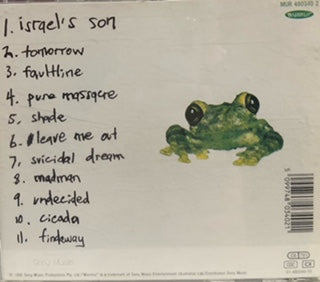 MUR 480340 2
murmur
1. israel's son
2. tomorrow
3. faultline
4. pure massacre
5. shade
6. leave me out
7. suicidal dream
8. madman
9. undecided
10. cicada
11. findaway
Sony Music
5 099748 034021